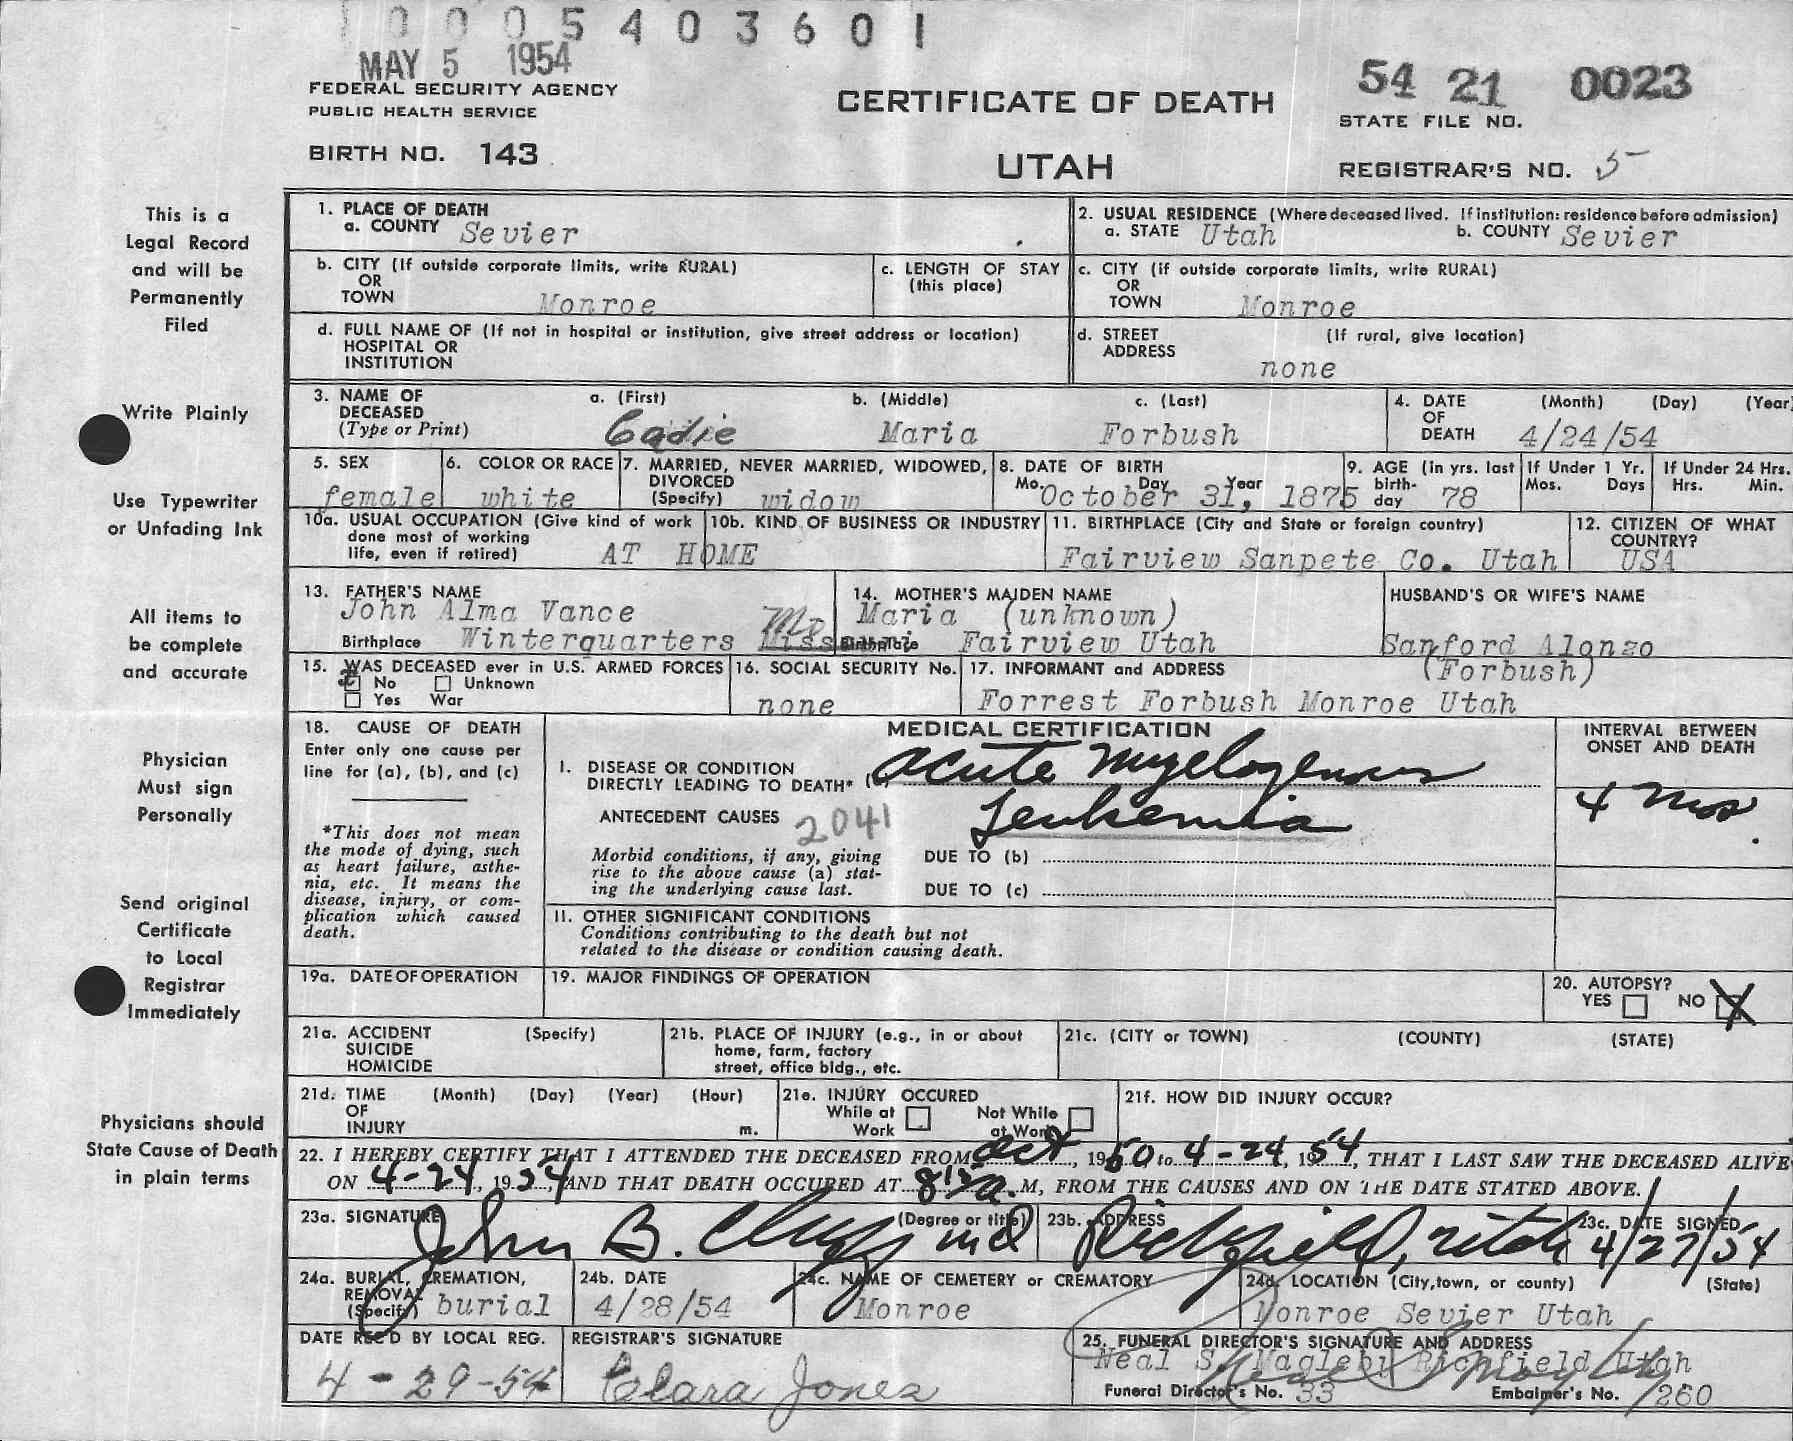 0005403601
MAY 5 1954
FEDERAL SECURITY AGENCY
PUBLIC HEALTH SERVICE
BIRTH NO. 143
CERTIFICATE OF DEATH
UTAH
54 21 0023
STATE FILE NO.
REGISTRAR'S NO. 5
This is a
Legal Record
and will be
Permanently
Filed
Write Plainly
Use Typewriter
or Unfading Ink
All items to
be complete
and accurate
Physician
Must sign
Personally
Send original
Certificate
to Local
Registrar
Immediately
Physicians should
State Cause of Death
in plain terms
1. PLACE OF DEATH
a. COUNTY Sevier
2. USUAL RESIDENCE (Where deceased lived. If institution: residence before admission)
a. STATE Utah b. COUNTY Sevier
b. CITY (If outside corporate limits, write RURAL)
OR
TOWN Monroe
c. LENGTH OF STAY
(this place)
c. CITY (if outside corporate limits, write RURAL)
OR
TOWN Monroe
d. FULL NAME OF (If not in hospital or institution, give street address or location)
HOSPITAL OR
INSTITUTION
d. STREET (If rural, give location)
ADDRESS
none
3. NAME OF a. (First) b. (Middle) c. (Last)
DECEASED
(Type or Print) Cadie Maria Forbush
4. DATE (Month) (Day) (Year)
OF
DEATH 4/24/54
5. SEX
female
6. COLOR OR RACE
white
7. MARRIED, NEVER MARRIED, WIDOWED,
DIVORCED
(Specify) widow
8. DATE OF BIRTH
Mo. Day Year
October 31, 1875
9. AGE (in yrs. last
birth-
day 78
If Under 1 Yr.
Mos. Days
If Under 24 Hrs.
Hrs. Min.
10a. USUAL OCCUPATION (Give kind of work
done most of working
life, even if retired) AT HOME
10b. KIND OF BUSINESS OR INDUSTRY
11. BIRTHPLACE (City and State or foreign country)
Fairview Sanpete Co. Utah
12. CITIZEN OF WHAT
COUNTRY?
USA
13. FATHER'S NAME
John Alma Vance
Birthplace Winterquarters Missouri
14. MOTHER'S MAIDEN NAME
Maria (unknown)
Birthplace Fairview Utah
HUSBAND'S OR WIFE'S NAME
Sanford Alonzo
(Forbush)
15. WAS DECEASED ever in U.S. ARMED FORCES
x No Unknown
Yes War
16. SOCIAL SECURITY No.
none
17. INFORMANT and ADDRESS
Forrest Forbush Monroe Utah
18. CAUSE OF DEATH
Enter only one cause per
line for (a), (b), and (c)
*This does not mean
the mode of dying, such
as heart failure, asthe-
nia, etc. It means the
disease, injury, or com-
plication which caused
death.
MEDICAL CERTIFICATION
I. DISEASE OR CONDITION
DIRECTLY LEADING TO DEATH* acute myelogenous
ANTECEDENT CAUSES 2041 Leukemia
Morbid conditions, if any, giving
rise to the above cause (a) stat-
ing the underlying cause last.
DUE TO (b)
DUE TO (c)
INTERVAL BETWEEN
ONSET AND DEATH
4 mos.
II. OTHER SIGNIFICANT CONDITIONS
Conditions contributing to the death but not
related to the disease or condition causing death.
19a. DATE OF OPERATION
19. MAJOR FINDINGS OF OPERATION
20. AUTOPSY?
YES NO X
21a. ACCIDENT (Specify)
SUICIDE
HOMICIDE
21b. PLACE OF INJURY (e.g., in or about
home, farm, factory
street, office bldg., etc.
21c. (CITY or TOWN) (COUNTY) (STATE)
21d. TIME (Month) (Day) (Year) (Hour)
OF
INJURY m.
21e. INJURY OCCURED
While at Not While
Work at Work
21f. HOW DID INJURY OCCUR?
22. I HEREBY CERTIFY THAT I ATTENDED THE DECEASED FROM Oct, 1950 to 4-24, 1954, THAT I LAST SAW THE DECEASED ALIVE
ON 4-24, 1954, AND THAT DEATH OCCURED AT 8 15 a.M, FROM THE CAUSES AND ON THE DATE STATED ABOVE.
23a. SIGNATURE (Degree or title)
John B. Cluff md
23b. ADDRESS
Richfield, Utah
23c. DATE SIGNED
4/27/54
24a. BURIAL, CREMATION,
REMOVAL
(Specify) burial
24b. DATE
4/28/54
24c. NAME OF CEMETERY or CREMATORY
Monroe
24d. LOCATION (City, town, or county) (State)
Monroe Sevier Utah
DATE REC'D BY LOCAL REG.
4-29-54
REGISTRAR'S SIGNATURE
Clara Jones
25. FUNERAL DIRECTOR'S SIGNATURE AND ADDRESS
Neal S. Magleby Richfield Utah
Funeral Director's No. 33 Embalmer's No. 260